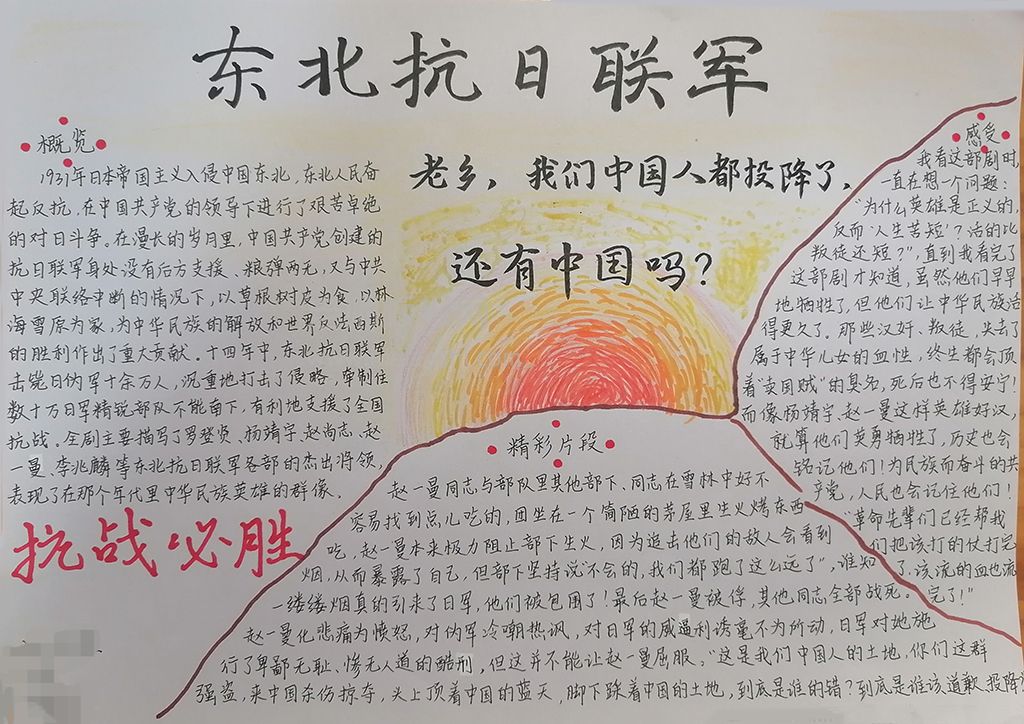 东北抗日联军
概览
1931年日本帝国主义入侵中国东北，东北人民奋
起反抗，在中国共产党的领导下进行了艰苦卓绝
的对日斗争。在漫长的岁月里，中国共产党创建的
抗日联军身处没有后方支援、粮弹两无，又与中共
中央联络中断的情况下，以草根树皮为食，以林
海雪原为家，为中华民族的解放和世界反法西斯
的胜利作出了重大贡献。十四年中，东北抗日联军
击毙日伪军十余万人，沉重地打击了侵略，牵制住
数十万日军精锐部队不能南下，有利地支援了全国
抗战。全剧主要描写了罗登贤、杨靖宇、赵尚志、赵
一曼、李兆麟等东北抗日联军各部的杰出将领，
表现了在那个年代里中华民族英雄的群像。
抗战必胜
老乡，我们中国人都投降了，
还有中国吗？
精彩片段
赵一曼同志与部队里其他部下、同志在雪林中好不
容易找到点儿吃的，团坐在一个简陋的茅屋里生火烤东西
吃，赵一曼本来极力阻止部下生火，因为追击他们的敌人会看到
烟，从而暴露了自己，但部下坚持说"不会的，我们都跑了这么远了"，谁知
一缕缕烟真的引来了日军，他们被包围了！最后赵一曼被俘，其他同志全部战死。
赵一曼化悲痛为愤怒，对伪军冷嘲热讽，对日军的威逼利诱毫不为所动，日军对她施
行了卑鄙无耻、惨无人道的酷刑，但这并不能让赵一曼屈服。"这是我们中国人的土地，你们这群
强盗，来中国杀伤掠夺，头上顶着中国的蓝天，脚下踩着中国的土地，到底是谁的错？到底是谁该道歉、投降
感受
我看这部剧时，
一直在想一个问题：
"为什么英雄是正义的，
反而"人生苦短"？活的比
叛徒还短？"，直到我看完了
这部剧才知道，虽然他们早早
地牺牲了，但他们让中华民族活
得更久了。那些汉奸、叛徒，失去了
属于中华儿女的血性，终生都会顶
着"卖国贼"的臭名，死后也不得安宁！
而像杨靖宇、赵一曼这样英雄好汉，
就算他们英勇牺牲了，历史也会
铭记他们！为民族而奋斗的共
产党，人民也会记住他们！
"革命先辈们已经帮我
们把该打的仗打完
了，该流的血也流
完了！"